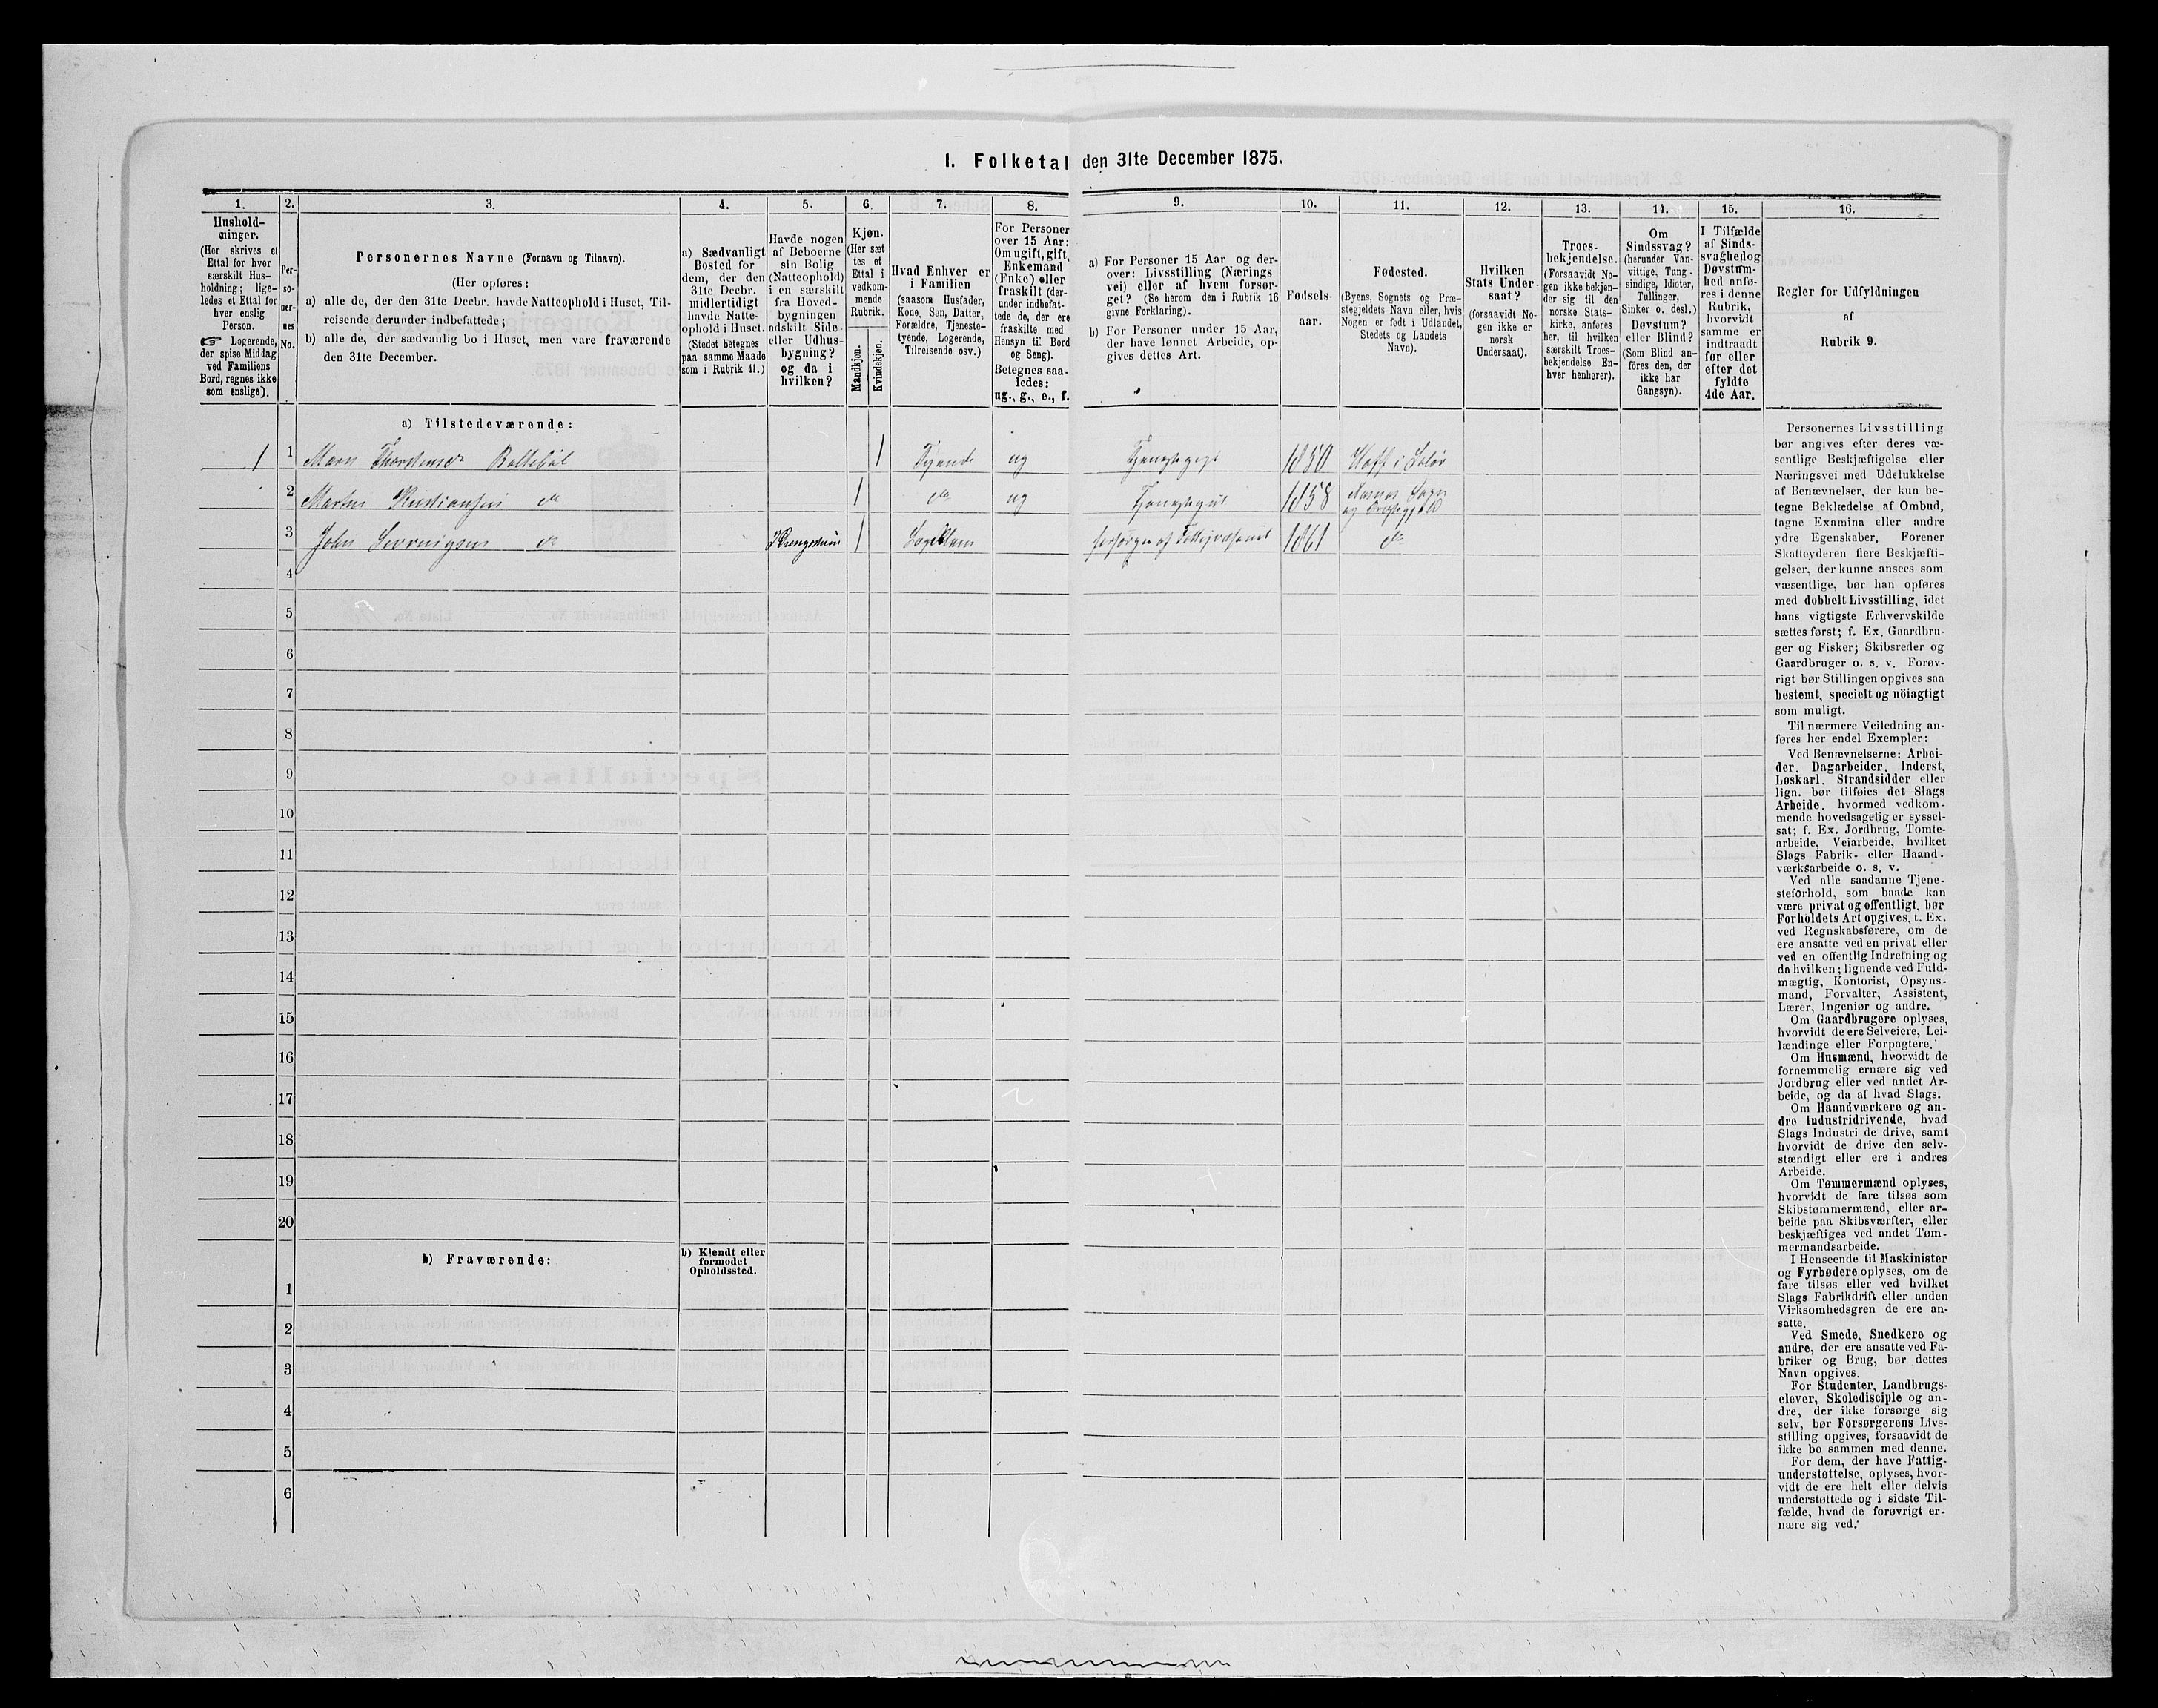 1. Folketal den 31te December 1875.
1.
2.
3.
4.
5.
6.
7.
8.
9.
10.
11.
12.
13.
14.
15.
16.
Hushold-
ninger.
(Her skrives et
Ettal for hver
særskilt Hus-
holdning; lige-
ledes et Ettal for
hver enslig
Person.
☞ Logerende,
der spise Middag
ved Familiens
Bord, regnes ikke
som enslige).
Per-
so-
ner-
nes
No.
Personernes Navne (Fornavn og Tilnavn).
(Her opføres:
a) alle de, der den 31te Decbr. havde Natteophold i Huset, Til-
reisende derunder indbefattede;
b) alle de, der sædvanlig bo i Huset, men vare fraværende
den 31te December.
a) Sædvanligt
Bosted for
dem, der den
31te Decbr.
midlertidigt
havde Natte-
ophold i Huset.
(Stedet betegnes
paa samme Maade
som i Rubrik 11.)
Havde nogen
af Beboerne
sin Bolig
(Natteophold)
i en særskilt
fra Hoved-
bygningen
adskilt Side
eller Udhus-
bygning?
og da i
hvilken?
Kjøn.
(Her sæt
tes et
Ettal i
vedkom-
mende
Rubrik.
Mandkjøn.
Kvindekjøn.
Hvad Enhver er
i Familien
(saasom Husfader,
Kone, Søn, Datter,
Forældre, Tjeneste-
tyende, Logerende,
Tilreisende osv.)
For Personer
over 15 Aar:
Om ugift, gift,
Enkemand
(Enke) eller
fraskilt (der-
under indbefat-
tede de, der ere
fraskilte med
Hensyn til Bord
og Seng).
Betegnes saa-
ledes:
ug., g., e., f.
a) For Personer 15 Aar og der-
over: Livsstilling (Nærings
vei) eller af hvem forsør-
get? (Se herom den i Rubrik 16
givne Forklaring).
b) For Personer under 15 Aar,
der have lønnet Arbeide, op-
gives dettes Art.
Fødsels-
aar.
Fødested.
(Byens, Sognets og Præ-
stegjeldets Navn eller, hvis
Nogen er født i Udlandet,
Stedets og Landets
Navn).
Hvilken
Stats Under-
saat?
(forsaavidt No-
gen ikke er
norsk
Undersaat).
Troes-
bekjendelse.
(Forsaavidt No-
gen ikke bekjen-
der sig til den
norske Stats-
kirke, anføres
her, til hvilken
særskilt Troes-
bekjendelse En-
hver henhører).
Om
Sindssvag?
(herunder Van-
vittige, Tung-
sindige, Idioter,
Tullinger,
Sinker o. desl.)
Døvstum?
eller Blind?
(Som Blind an-
føres den, der
ikke har
Gangsyn).
I Tilfælde
af Sinds-
svaghed og
Døvstum-
hed anfø-
res i denne
Rubrik,
hvorvidt
samme er
indtraadt
før eller
efter det
fyldte
4de Aar.
Regler for Udfyldningen
af
Rubrik 9.
a) Tilstedeværende:
1 1 Maren Thorstensdr 1 Tyende ug Tjenestepige 1850 Hoff i Solør
2 Martin Kristiansen do 1 do ug Tjenestegut 1858 Aasnes Sogn
og Præstegjeld
3 John do 1 Lægdslem forsørges af Fattigvæsenet 1861 do
4
5
6
7
8
9
10
11
12
13
14
15
16
17
18
19
20
b) Fraværende:
b) Kjendt eller
formodet
Opholdssted.
1
2
3
4
5
6
Personernes Livsstilling
bør angives efter deres væ-
sentlige Beskjæftigelse eller
Næringsvei med Udelukkelse
af Benævnelser, der kun be-
tegne Beklædelse af Ombud,
tagne Examina eller andre
ydre Egenskaber. Forener
Skatteyderen flere Beskjæfti-
gelser, der kunne ansees som
væsentlige, bør han opføres
med dobbelt Livsstilling, idet
hans vigtigste Erhvervskilde
sættes først; f. Ex. Gaardbru-
ger og Fisker; Skibsreder og
Gaardbruger o. s. v. Forøv-
rigt bør Stillingen opgives saa
bestemt, specielt og nöiagtigt
som muligt.
Til nærmere Veiledning an-
føres her endel Exempler:
Ved Benævnelserne: Arbei-
der, Dagarbeider, Inderst,
Løskarl, Strandsidder eller
lign. bør tilføies det Slags
Arbeide, hvormed vedkom-
mende hovedsagelig er syssel-
sat; f. Ex. Jordbrug, Tomte-
arbeide, Veiarbeide, hvilket
Slags Fabrik- eller Haand-
værksarbeide o. s. v.
Ved alle saadanne Tjene-
steforhold, som baade kan
være privat og offentligt, bør
Forholdets Art opgives, t. Ex.
ved Regnskabsførere, om de
ere ansatte ved en privat eller
ved en offentlig Indretning og
da hvilken; lignende ved Fuld-
mægtig, Kontorist, Opsyns-
mand, Forvalter, Assistent,
Lærer, Ingeniør og andre.
Om Gaardbrugere oplyses,
hvorvidt de ere Selveiere, Lei-
lændinge eller Forpagtere.
Om Husmænd, hvorvidt de
fornemmelig ernære sig ved
Jordbrug eller ved andet Ar-
beide, og da af hvad Slags.
Om Haandværkere og an-
dre Industridrivende, hvad
Slags Industri de drive, samt
hvorvidt de drive den selv-
stændigt eller ere i andres
Arbeide.
Om Tømmermænd oplyses,
hvorvidt de fare tilsøs som
Skibstømmermænd, eller ar-
beide paa Skibsværfter, eller
beskjæftiges ved andet Tøm-
mermandsarbeide.
I Henseende til Maskinister
og Fyrbødere oplyses, om de
fare tilsøs eller ved hvilket
Slags Fabrikdrift eller anden
Virksomhedsgren de ere an-
satte.
Ved Smede, Snedkere og
andre, der ere ansatte ved Fa-
briker og Brug, bør dettes
Navn opgives.
For Studenter, Landbrugs-
elever, Skoledisciple og an-
dre, der ikke forsørge sig
selv, bør Forsørgerens Livs-
stilling opgives, forsaavidt de
ikke bo sammen med denne.
For dem, der have Fattig-
understøttelse, oplyses, hvor-
vidt de ere helt eller delvis
understøttede og i sidste Til-
fælde, hvad de forøvrigt er-
nære sig ved.